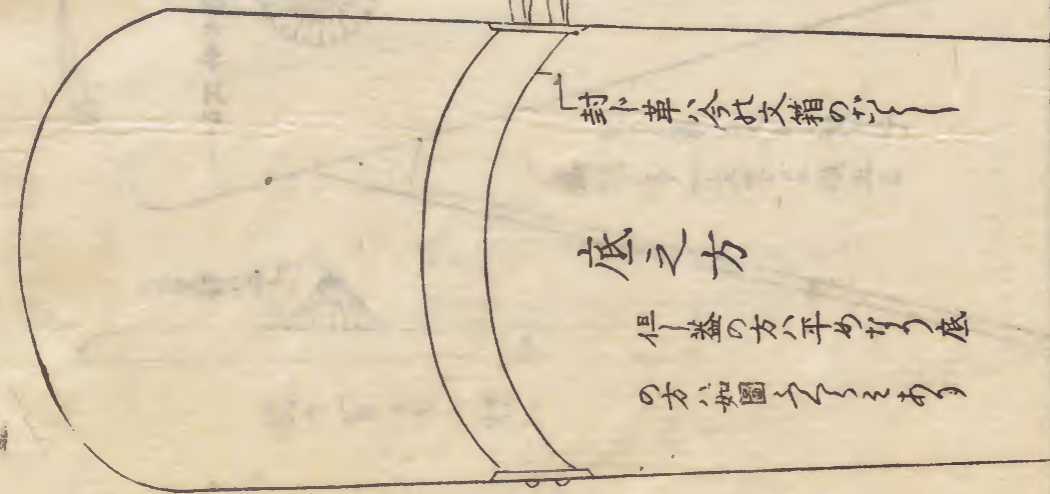 封ド革ハ今代文箱のごとし
底之方
但し蓋の方ハ平めなり底
の方ハ如圖うくりそあり